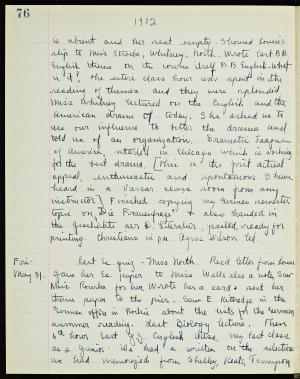 76
1912
be absent and her seat empty. Showed Louise's
slip to Miss Streibe, Whitney, North. Wrote last B.B.
English theme on the course itself B.B. English - What
is it? The entire class hour was spent in the
reading of themes and they were splendid.
Miss Whitney lectured on the English and the
American drama of today. She asked us to
use our influence to better the drama and
told us of an organization, Dramatic League
of America, started in Chicago which is working
for the best drama. [This is the first actual
appeal, enthusiastic and spontaneous I have
heard in a Vassar class room from any
instructor.] Finished copying my German semester
topic on "Die Frauenfrage" & also handed in
the Geschichte der D. Literatur, pasted, ready for
printing. Christians in P.M. Agnes Wilson led.
Fri.
May 31.
Last Ec. quiz - Miss North. Rec'd letter from Louise
gave her Ec. paper to Miss Wells also a note. Saw
Miss Rourke for her. Wrote her a card & sent her
theme paper to the pier. Saw E. Kittredge in the
German office in Rockie about the lists for the German
summer reading. Last Biology lecture. Then
6th hour last of B.B. English class, my last class
as a Junior. We had a written on the selections
we had memorized from Shelley, Keats, Tennyson